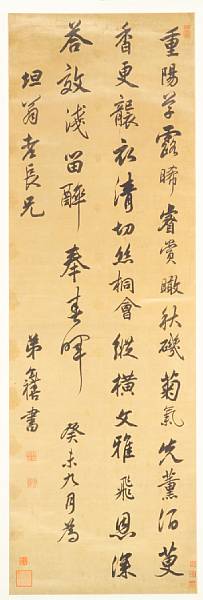 重陽早露晞睿賞瞰秋磯菊氣先薰酒萸
香更襲衣清切絲桐會縱橫文雅飛恩深
荅效淺留醉奉宸暉 癸未九月為
坦翁老長兄 弟奕禧書